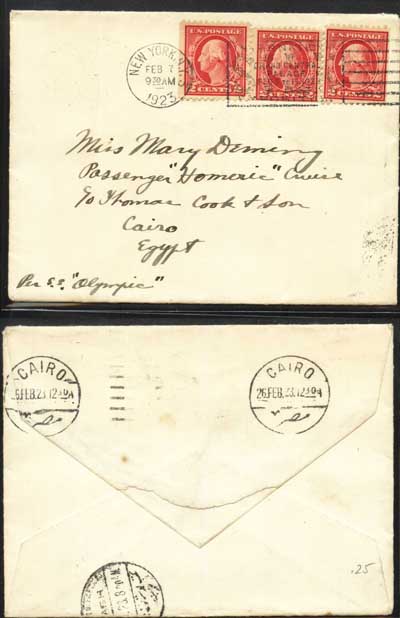 NEW YORK, N.Y.
FEB 7
9 30 AM
1923
U.S. POSTAGE
U.S. POSTAGE
U.S. POSTAGE
2 CENTS 2
Miss Mary Deming
Passenger "Homeric" Cruise
c/o Thomas Cook & Son
Cairo
Egypt
Per S.S. "Olympic"
CAIRO
6.FEB.23.12 30 A
CAIRO
26.FEB.23.12 30 A
.25